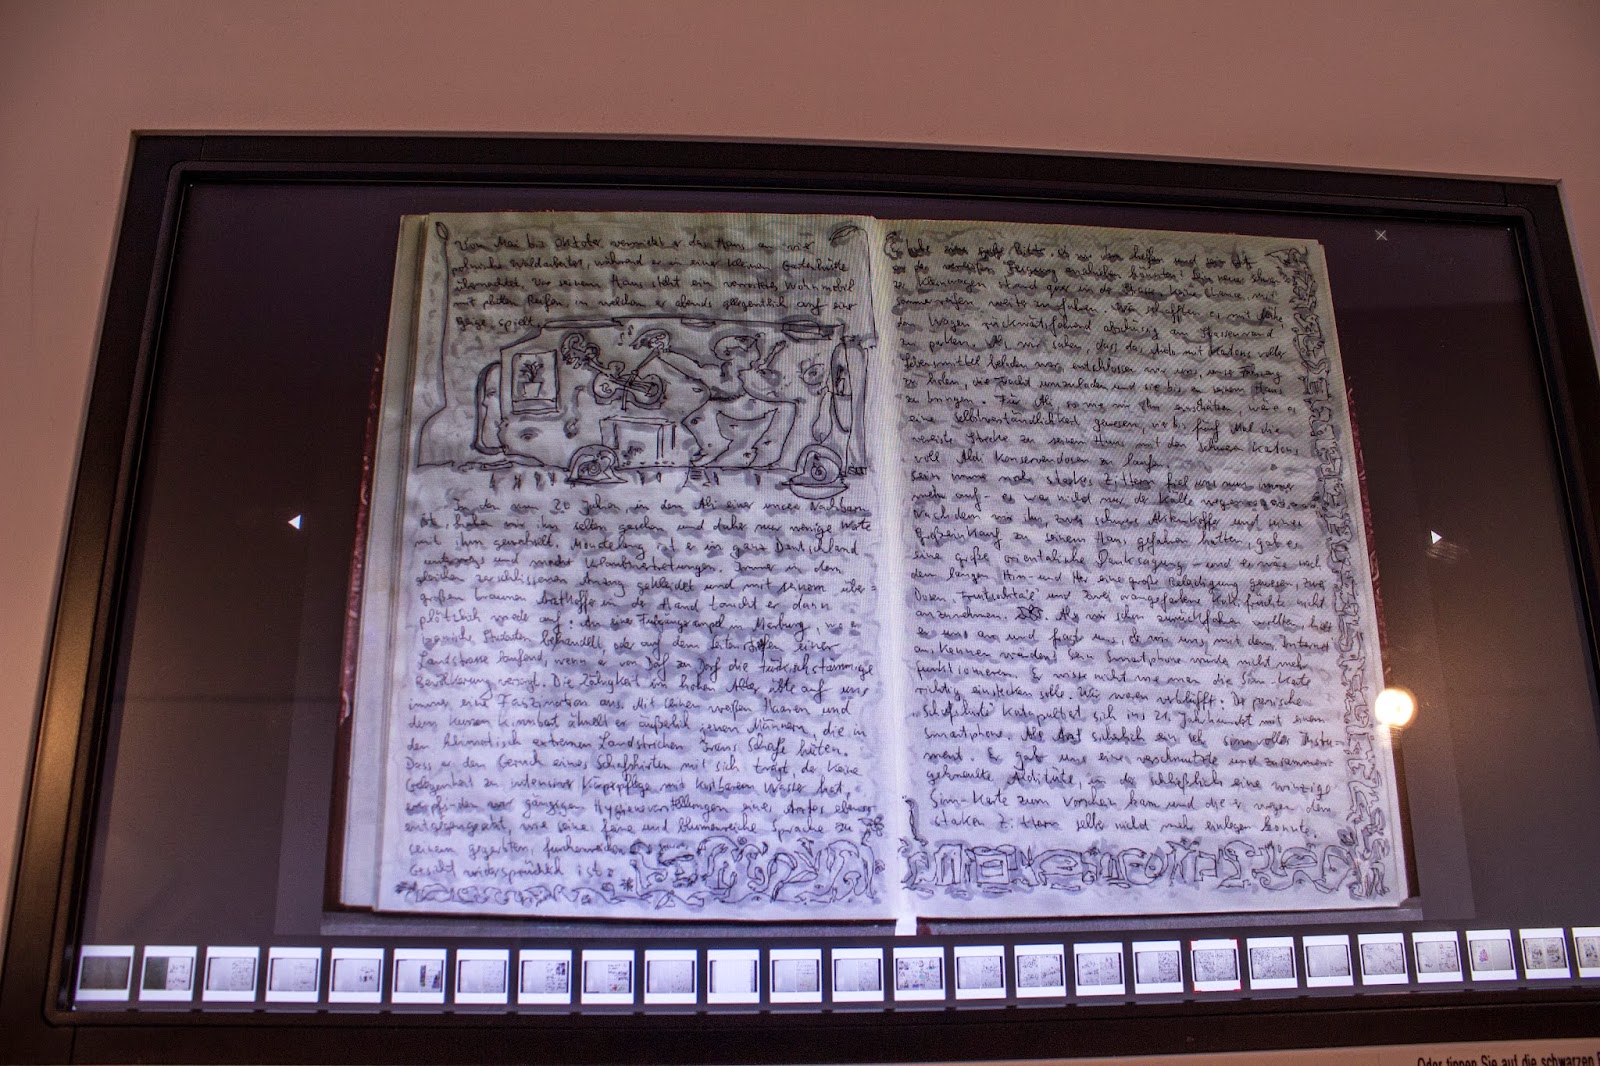 Von Mai bis Oktober vermietet er das Haus an vier
polnische Waldarbeiter, während er in einer kleinen Gartenhütte
übernachtet. Vor seinem Haus steht ein verrostetes Wohnmobil
mit platten Reifen in welchem er abends gelegentlich auf einer
Geige spielt.
In den nun 20 Jahren, in dem Ali einer unserer Nachbarn
ist, haben wir ihn selten gesehen und daher nur wenige Worte
mit ihm gewechselt. Monatelang ist er in ganz Deutschland
unterwegs und macht Urlaubsvertretungen. Immer in dem
gleichen zerschlissenen Anzug gekleidet und mit seinem über=
großen braunen Arztkoffer in der Hand taucht er dann
plötzlich wieder auf: An einer Fußgängerampel in Marburg, wo er
Patienten behandelt, oder auf dem Seitenstreifen einer
Landstrasse laufend, wenn er von Dorf zu Dorf die türkischstämmige
Bevölkerung versorgt. Die Zähigkeit im hohen Alter übte auf uns
immer eine Faszination aus. Mit seinen weißen Haaren und
dem kurzen Kinnbart ähnelt er äußerlich jenen Männern, die in
den klimatisch extremen Landstrichen Irans Schafe hüten.
Dass er den Geruch eines Schafshirten mit sich trägt, der keine
Gelegenheit zu intensiver Körperpflege mit kostbarem Wasser hat,
den gängigen Hygienevorstellungen eines Arztes ebenso
entgegengesetzt, wie seine feine und blumenreiche Sprache zu
seinem gegerbten, furchenreichen
Gesicht widersprüchlich ist.
Kleinwagen stand quer in der Strasse. Keine Chance, mit
Sommerreifen weiterzufahren. Wir schafften es mit Mühe,
den Wagen rückwärtsfahrend abschüssig am Strassenrand
zu parken. Als wir sahen, dass das Auto mit Kartons voller
Lebensmittel beladen war, entschlossen wir uns, unser Fahrzeug
zu holen, die Fracht umzuladen und sie bis zu seinem Haus
zu bringen. Für Ali so wie wir ihn einschätzen, wäre es
eine Selbstverständlichkeit gewesen, vier bis fünf Mal die
vereiste Strecke zu seinem Haus mit den schweren Kartons
voll Aldi Konservendosen zu laufen.
Sein immer mehr starkes Zittern fiel uns nun immer
mehr auf - es war nicht nur der Kälte wegen
Nachdem wir ihn, zwei schwere Aktenkoffer und seinen
Großeinkauf zu seinem Haus gefahren hatten, gab es
eine große orientalische Danksagung, - und es wäre nach
dem langen Hin- und Her eine große Beleidigung gewesen, zwei
Dosen „Fruitcocktail" und zwei orangefarbene Kaki-früchte nicht
anzunehmen. Als wir schon zurückfahren wollten, hielt
er uns an und fragt uns, ob wir uns mit dem Internet
auskennen würden? Sein Smartphone würde nicht mehr
funktionieren. Er wisse nicht wie man die Sim-Karte
richtig einstecken solle. Wir waren verblüfft: Der persische
„Schafshirte" katapultiert sich ins 21. Jahrhundert mit einem
Smartphone. Als Arzt sicherlich ein sinnvolles Instru-
ment. Er gab uns eine verschmutzte und zusammen-
geknäulte Alditüte, in der schließlich eine winzige
Sim-Karte zum Vorschein kam und die er wegen dem
starken Zittern selbst nicht mehr einlegen konnte.
Oder tippen Sie auf die schwarzen